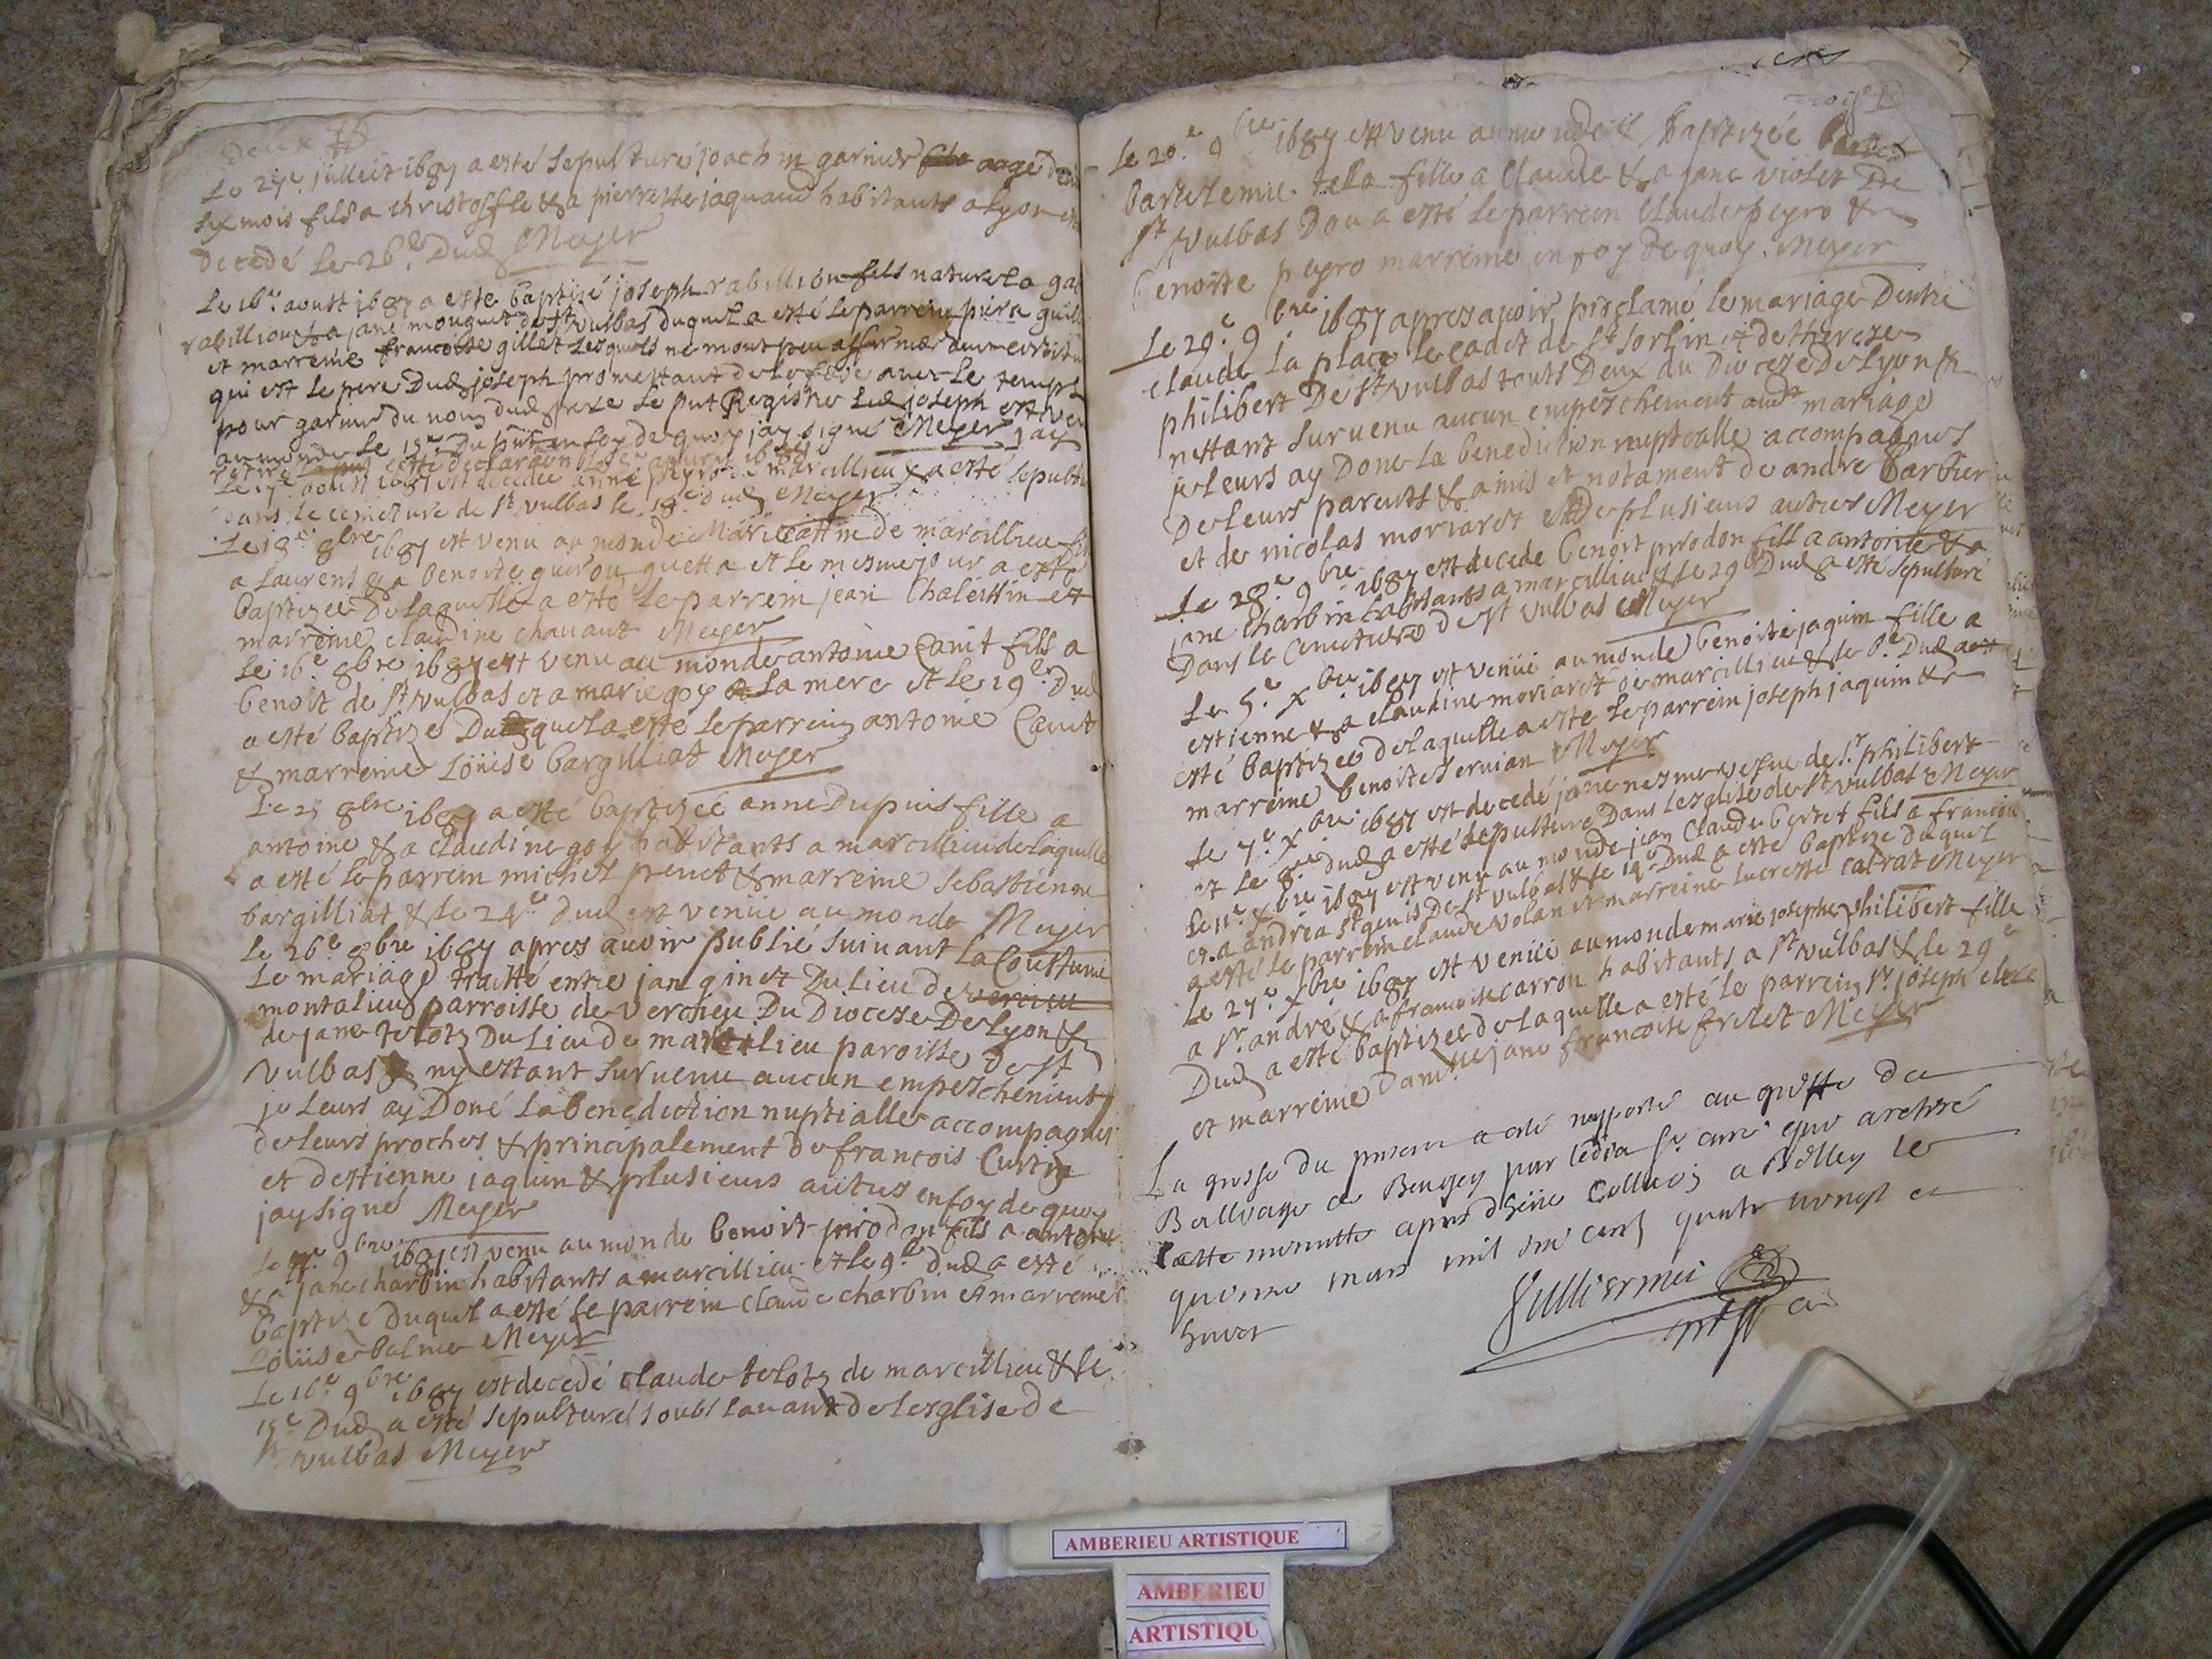 Le 27e juillet 1687 a esté sepulturé joachin garnier aagé de
six mois fils a christoffle & a pierrette jaquand habitants a lyon
decedé le 26e Dud Meyer
Le 16e aoust 1687 a esté baptizé joseph rabillion fils naturel a
rabillion & a jane mouquet de st vulbas duquel a esté le parrein piere
et marreine francoise gillet lesquels ne mont peu affirmer
qui est le pere Dud joseph promettant de le avec le temps
pour garnir du nom dud pere le pnt Registre led joseph est
au monde le 15e Du pnt en foy de quoy jay signé Meyer
Le aoust 1687 est decedée anne peyro de marcillieu & a esté
dans le cemeture de st vulbas le 18e dud Meyer
Le 18e 8bre 1687 est venu au monde Marie cattin de marcillieu
a laurens & a benoite guerou et le mesme jour a esté
baptizee De laquelle a esté le parrein jean Chaleissin et
marreine claudine chavant Meyer
Le 16e 8bre 1687 est venu au monde antoine Cavit fils a
benoit de st vulbas et a marie goy la mere et le 19e Dud
a esté baptize Duquel a esté le parrein antoine Cavit
& marreine Loüise bargilliat Meyer
Le 25 8bre 1687 a esté baptizée anne Dupuis fille a
antoine & a claudine goy habitants a marcillieu de laquelle
a esté le parrein michel prenet & marreine sebastienne
bargilliat & le 24e dud est venüe au monde Meyer
Le 26e 8bre 1687 apres avoir publié suivant la Coustume
Le mariage traitté entre jan ginet Du lieu de
montalieu parroisse de vercieu Du Diocese De lyon &
de jane telots Du lieu de marcilieu paroisse de st
vulbas ny estant survenu aucun empeschement
je leurs ay Doné la benediction nuptialle accompagnes
de leurs proches & principalement de francois Curtis
et destienne jaquin & plusieurs autres en foy de quoy
jay signé Meyer
Le 9bre 1687 est venu au monde benoit prodon fils a antoine
& a jane charbin habitants a marcillieu et le 9e dud a esté
baptize duquel a esté le parrein claude charbin et marreine
Loüise balme Meyer
Le 16e 9bre 1687 est decedé claude telots de marcillieu & le
Dud a esté sepulturé soubs lavant de lesglise de
st vulbas Meyer
Le 20e 9bre 1687 est venu au monde & baptizée
bartelemie fille a Claude & a jane violet De
st Vulbas Dou a esté le parrein Claude peyro &
benoite peyro marreine en foy de quoy Meyer
Le 29e 9bre 1687 apres avoir proclamé le mariage Dentre
claude la place le cadet de st sorlin et de therese
philibert De st vulbas touts Deux du Diocese De lyon &
nestant survenu aucun empeschement aud mariage
je leurs ay Doné la benediction nuptialle accompagnes
De leurs parents & amis et notament de andre barbier
et de nicolas moriaret et de plusieurs autres Meyer
Le 28e 9bre 1687 est decede benoit prodon fils a antoine & a
jane charbin habitants a marcillieu & le 29e Dud a esté sepulturé
Dans le Cemeture de st vulbas Meyer
Le 5e Xbre 1687 est venüe au monde benoite jaquin fille a
estienne & a claudine moriaret de marcillieu & le 6e Dud a
esté baptizee de laquelle a esté le parrein joseph jaquin &
marreine benoite servian Meyer
Le 7e Xbre 1687 est decedé jane nesme vefve de Sr philibert
et le 8e dud a esté sepulturé Dans lesglise de st vulbas Meyer
Le 11e Xbre 1687 est venu au monde jean Claude bertet fils a francois
et a andrea st genis De st vulbas & le 14e Dud a esté baptize duquel
a esté le parrein claude volan et marreine lucresse catrat Meyer
Le 27e Xbre 1687 est venüe au monde marie josephe philibert fille
a Sr andré & a francoise carron habitants a st vulbas & le 29e
Dud a esté baptizee de laquelle a esté le parrein Sr joseph
et marreine Dame jane francoise frelet Meyer
La grosse du present a esté rapporté au greffe du
Bailliage de Beugey par ledit Sr curé qui a retiré
Cette minutte apres deüe Collation a Belley le
quinze mars mil six cent quatre vingt et
huict
AMBERIEU ARTISTIQUE
AMBERIEU
ARTISTIQU